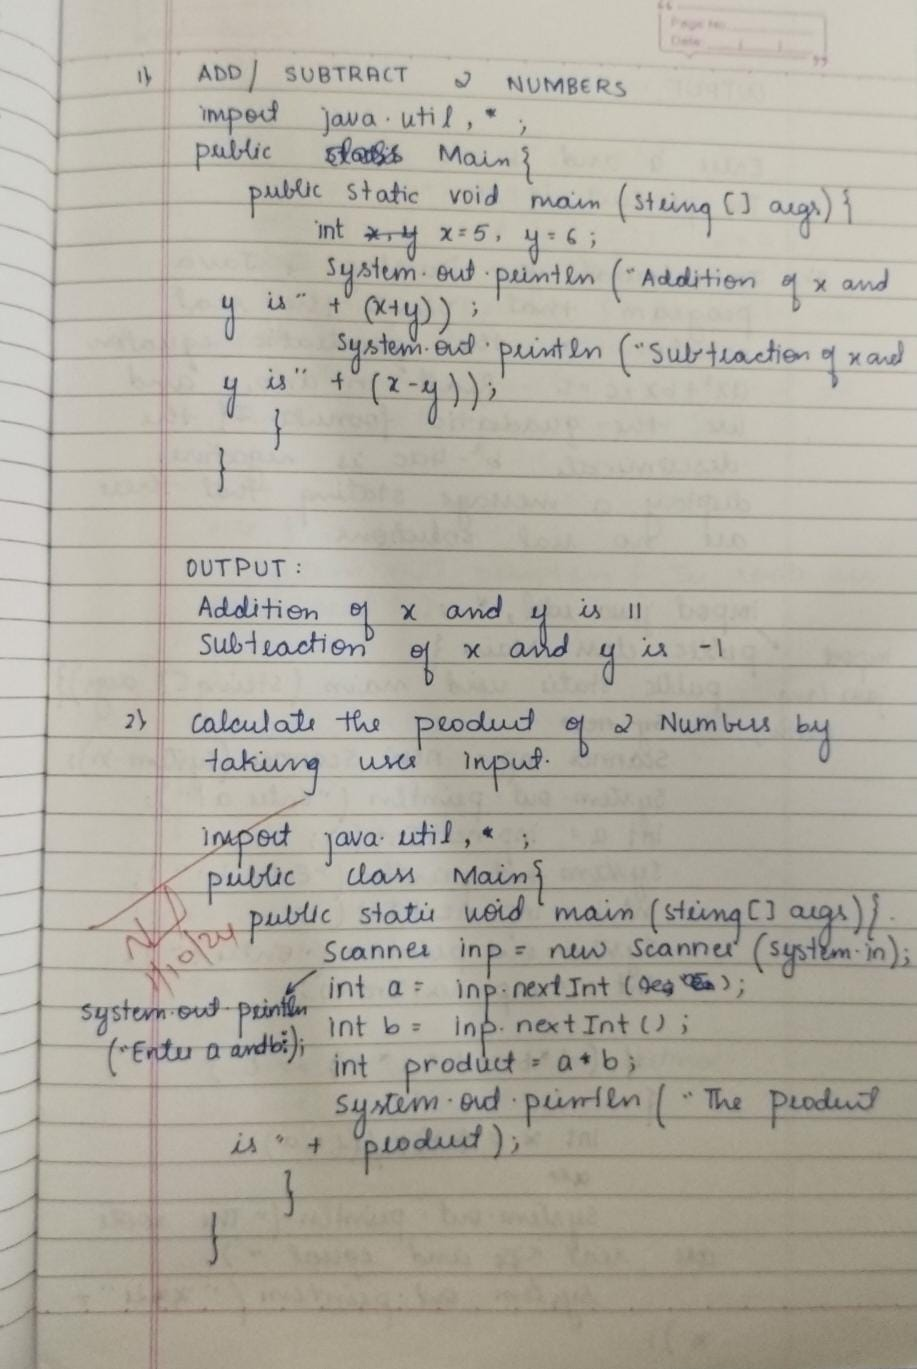 Page No.
Date
1) ADD / SUBTRACT 2 NUMBERS
import java.util,*;
public Main{
public static void main (String [] args){
int x, y x=5, y=6;
System.out.println ("Addition of x and
y is" + (x+y));
System.out.println ("Subtraction of x and
y is" + (x-y));
}
}
OUTPUT:
Addition of x and y is 11
Subtraction of x and y is -1
2) Calculate the product of 2 Numbers by
taking user input.
import java.util,*;
public class Main{
public static void main (String [] args){
Scanner inp = new Scanner (System.in);
int a = inp.nextInt ();
System.out.println
("Enter a and b:);
int b = inp.nextInt ();
int product = a*b;
System.out.println ("The product
is" + product);
}
}
1/10/24